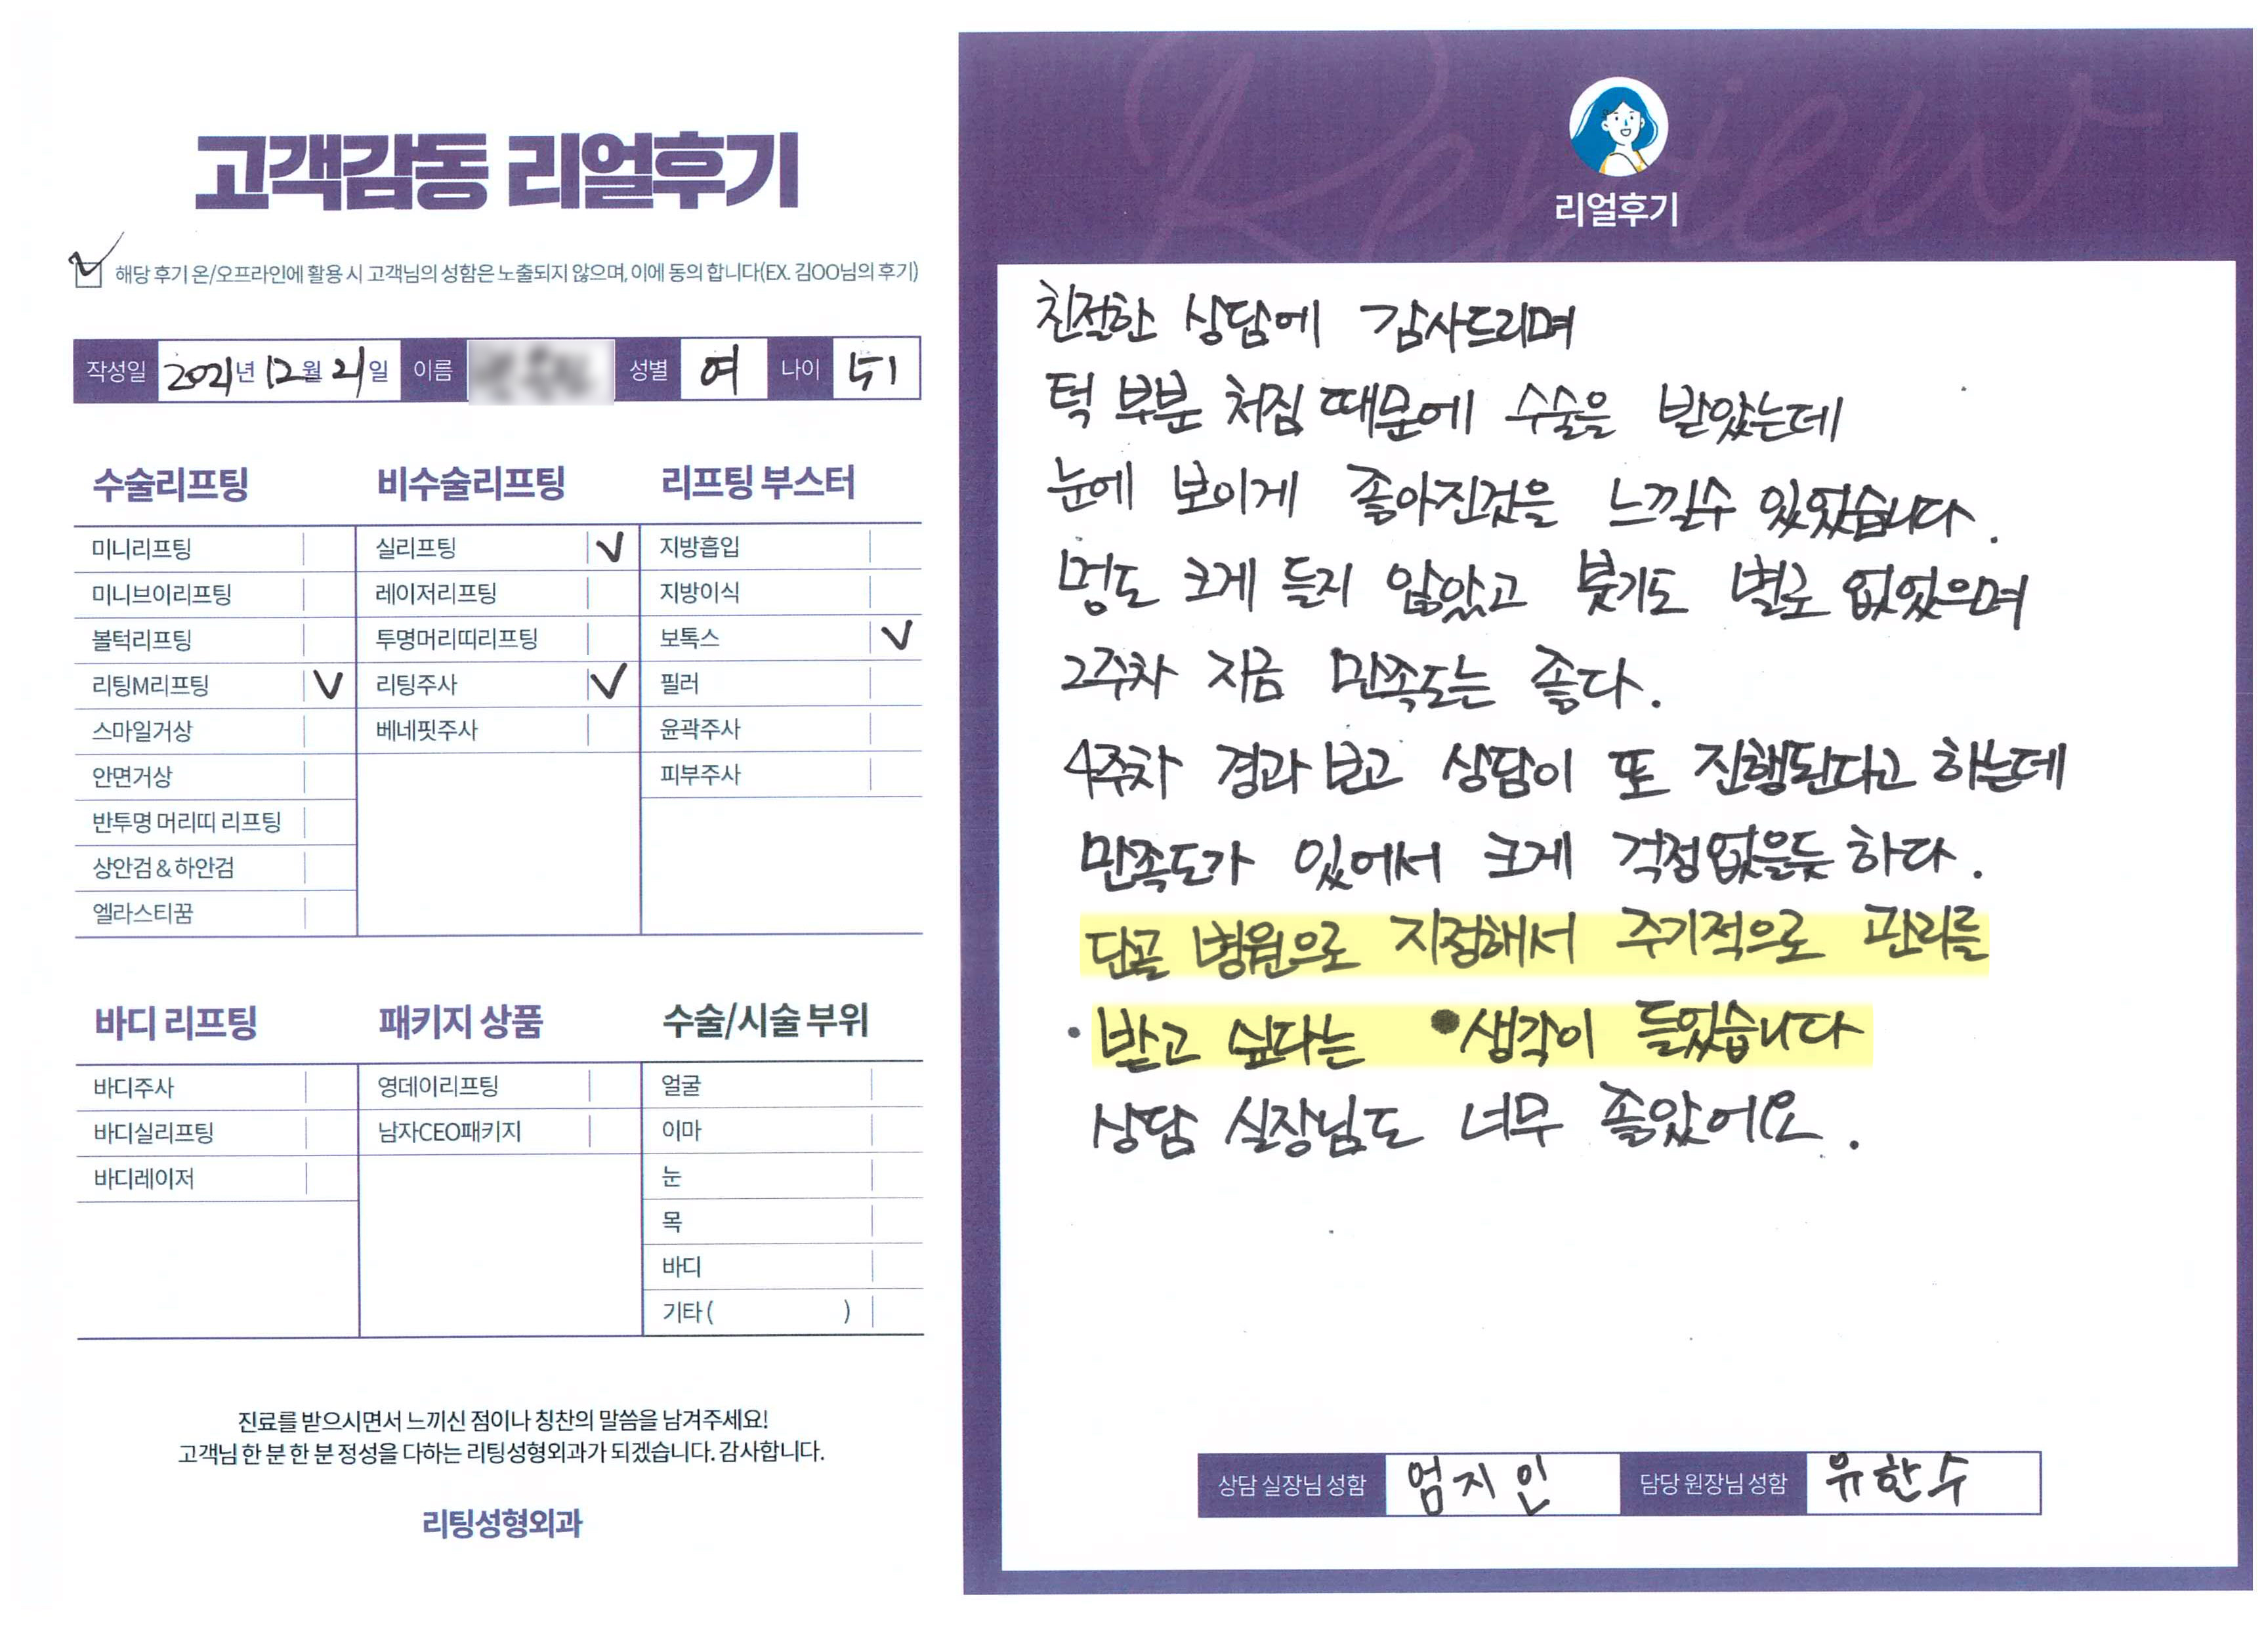 고객감동 리얼후기
해당 후기 온/오프라인에 활용 시 고객님의 성함은 노출되지 않으며, 이에 동의 합니다(EX. 김OO님의 후기)
작성일 2021년 12월 21일 이름 성별 여 나이 51
수술리프팅
미니리프팅
미니브이리프팅
볼턱리프팅
리팅M리프팅 V
스마일거상
안면거상
반투명 머리띠 리프팅
상안검 & 하안검
엘라스티꿈
비수술리프팅
실리프팅 V
레이저리프팅
투명머리띠리프팅
리팅주사 V
베네핏주사
리프팅 부스터
지방흡입
지방이식
보톡스 V
필러
윤곽주사
피부주사
바디 리프팅
바디주사
바디실리프팅
바디레이저
패키지 상품
영데이리프팅
남자CEO패키지
수술/시술 부위
얼굴
이마
눈
목
바디
기타 ( )
진료를 받으시면서 느끼신 점이나 칭찬의 말씀을 남겨주세요!
고객님 한 분 한 분 정성을 다하는 리팅성형외과가 되겠습니다. 감사합니다.
리팅성형외과
Review
리얼후기
친절한 상담에 감사드리며
턱 부분 처짐 때문에 수술을 받았는데
눈에 보이게 좋아진것을 느낄수 있었습니다.
멍도 크게 들지 않았고 붓기도 별로 없었으며
2주차 지금 만족도는 좋다.
4주차 경과 보고 상담이 또 진행된다고 하는데
만족도가 있어서 크게 걱정없을듯 하다.
단골 병원으로 지정해서 주기적으로 관리를
받고 싶다는 생각이 들었습니다
상담 실장님도 너무 좋았어요.
상담 실장님 성함 엄지인 담당 원장님 성함 유한수